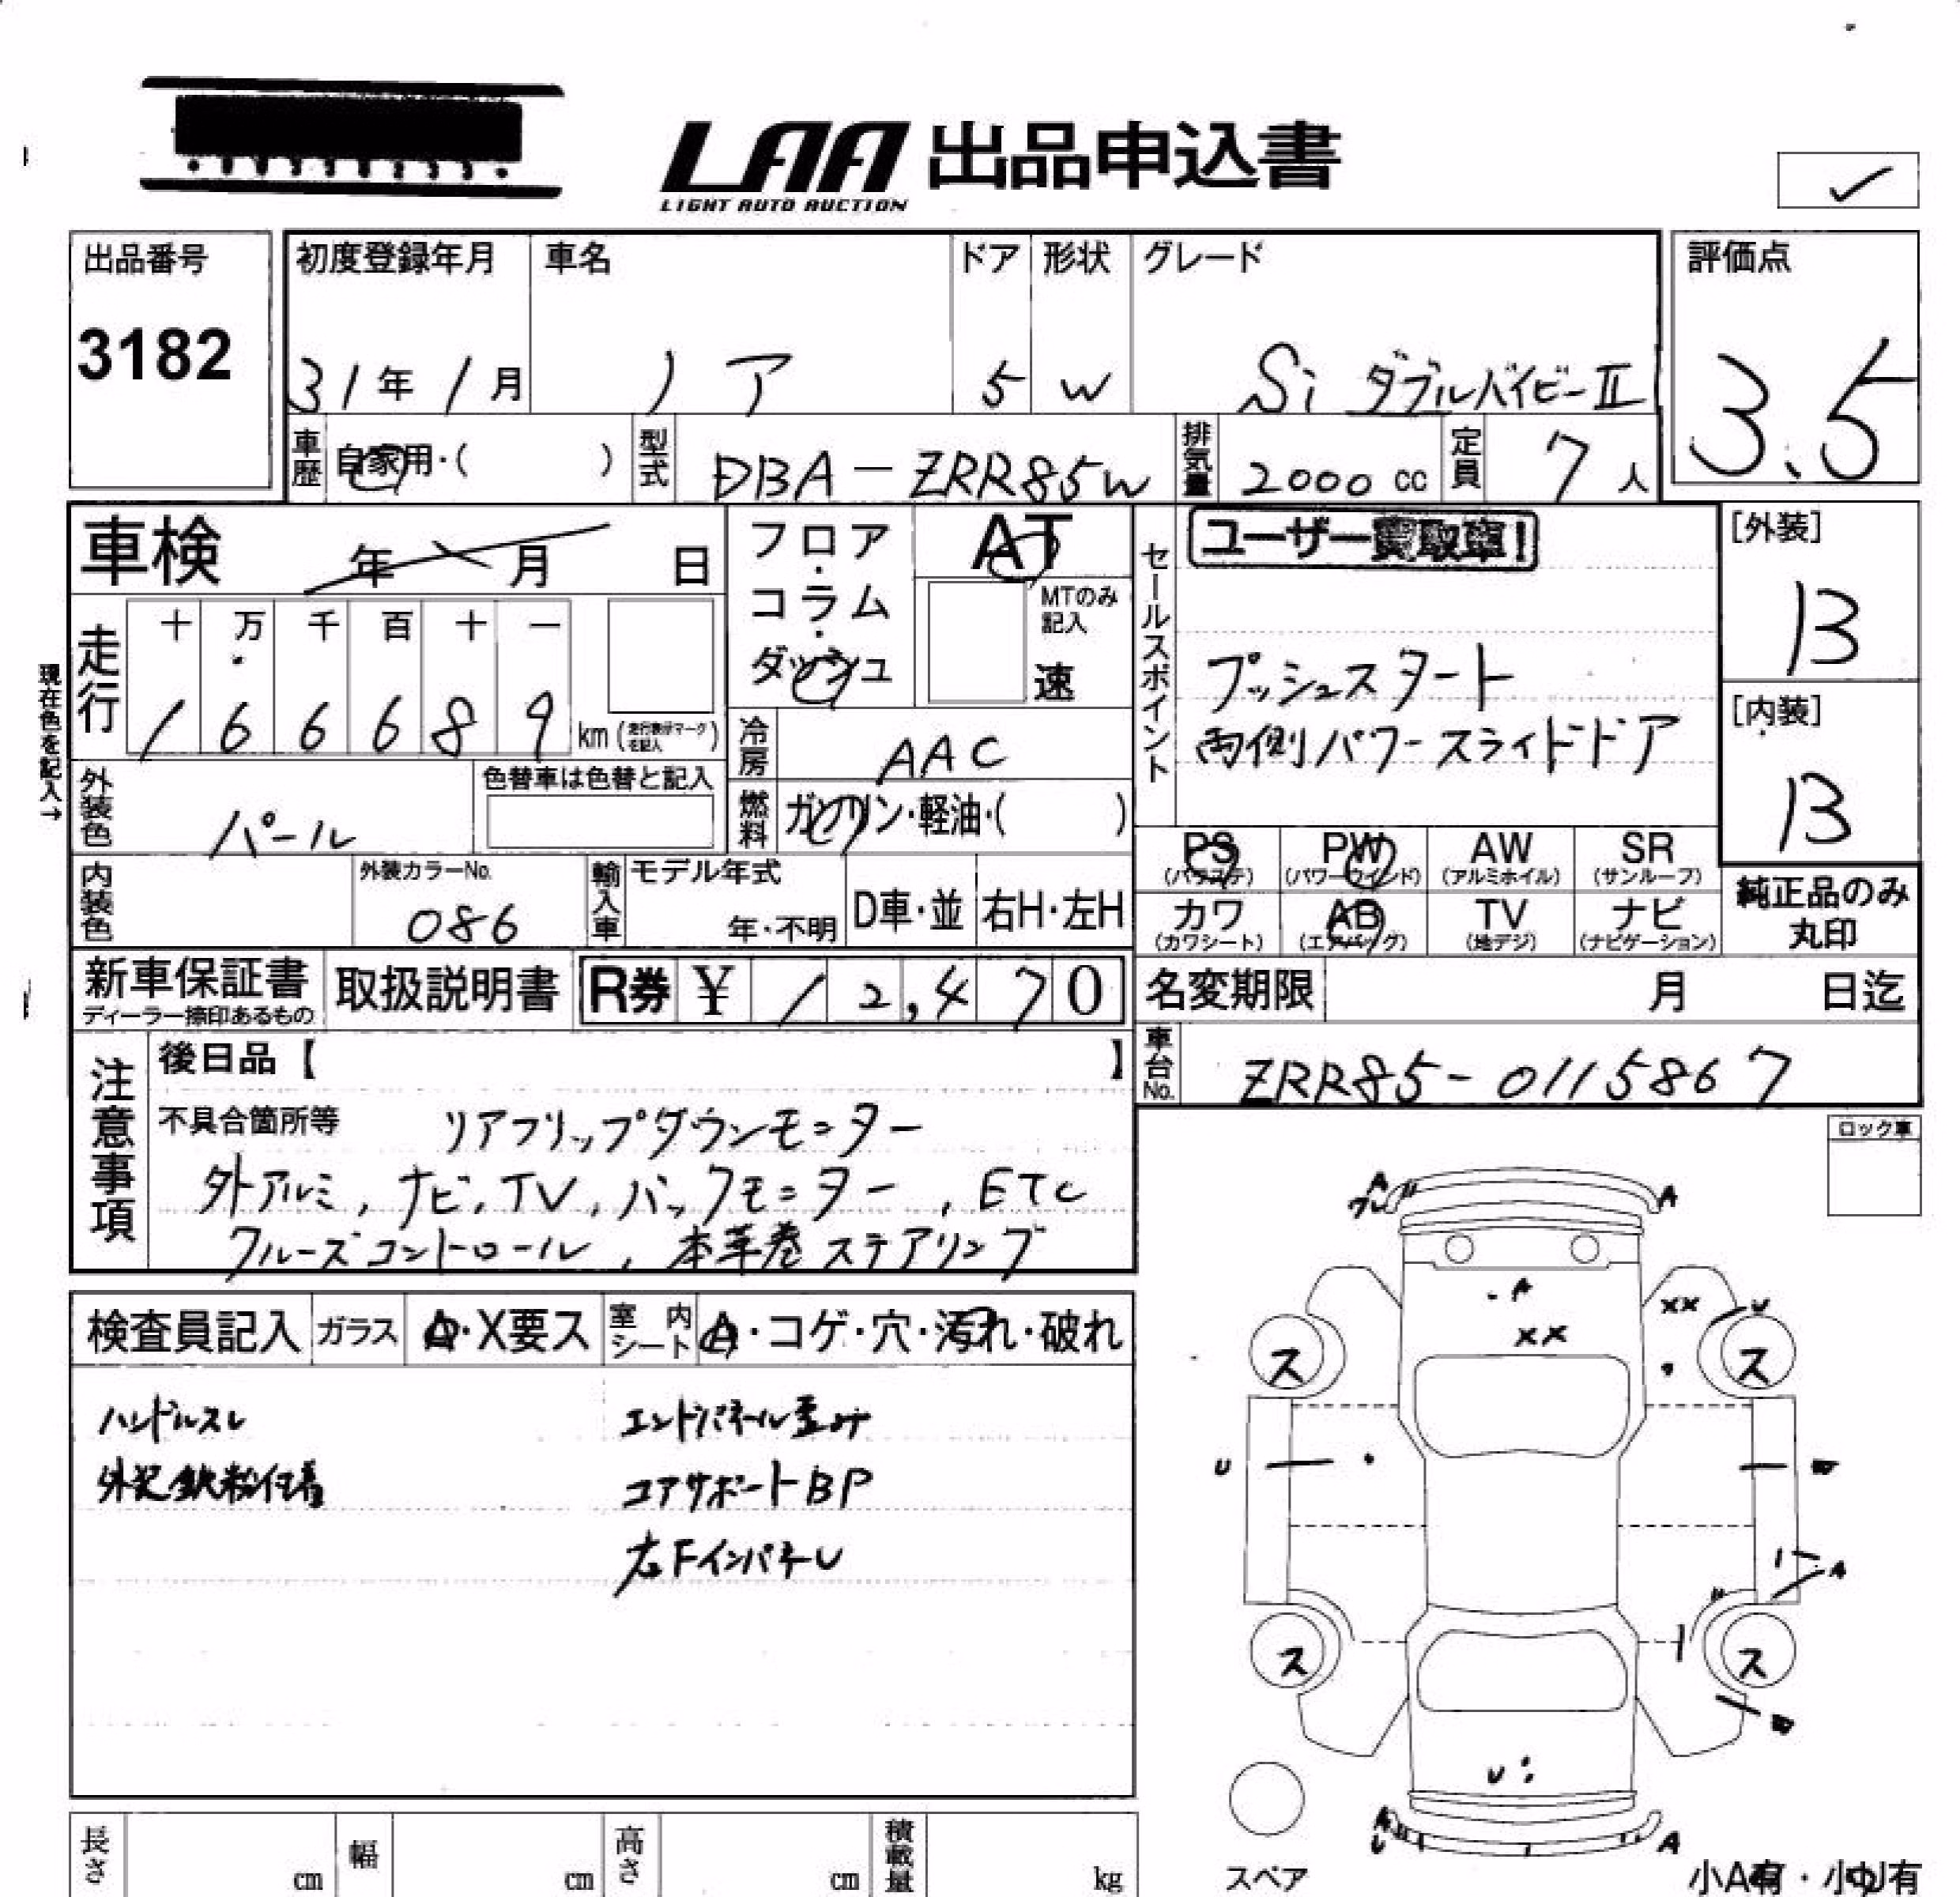 LAA 出品申込書
LIGHT AUTO AUCTION
出品番号
3182
初度登録年月
31年1月
車名
ノア
ドア
5
形状
W
グレード
Si ダブルバイビーII
評価点
3.5
車歴
自家用・( )
型式
DBA-ZRR85W
排気量
2000 cc
定員
7人
車検
年 月 日
フロア・コラム・ダッシュ
AT
MTのみ記入
速
セールスポイント
ユーザー買取車!
プッシュスタート
両側パワースライドドア
[外装]
B
[内装]
B
現在色を記入→
走行
十 万 千 百 十 一
1 6 6 6 8 9 km (走行表示マークを記入)
冷房
AAC
外装色
パール
色替車は色替と記入
燃料
ガソリン・軽油・( )
PS (パワステ)
PW (パワーウインド)
AW (アルミホイル)
SR (サンルーフ)
カワ (カワシート)
AB (エアバッグ)
TV (地デジ)
ナビ (ナビゲーション)
純正品のみ
丸印
内装色
外装カラーNo.
086
輸入車
モデル年式
年・不明
D車・並
右H・左H
新車保証書
ディーラー捺印あるもの
取扱説明書
R券 ¥12,470
名変期限 月 日迄
車台No.
ZRR85-0115867
注意事項
後日品【 】
不具合箇所等 リアフリップダウンモニター
外アルミ, ナビ, TV, バックモニター, ETC
クルーズコントロール, 本革巻ステアリング
ロック車
検査員記入
ガラス
A・X要ス
室内シート
A・コゲ・穴・汚れ・破れ
ハンドルスレ
外装鉄粉付着
エンドパネル歪み
コアサポートBP
右FインパネU
A
A
A
XX
XX
U
ス
ス
U
A
ス
ス
U
A
U
A
スペア
小A有・小U有
長さ cm
幅 cm
高さ cm
積載量 kg